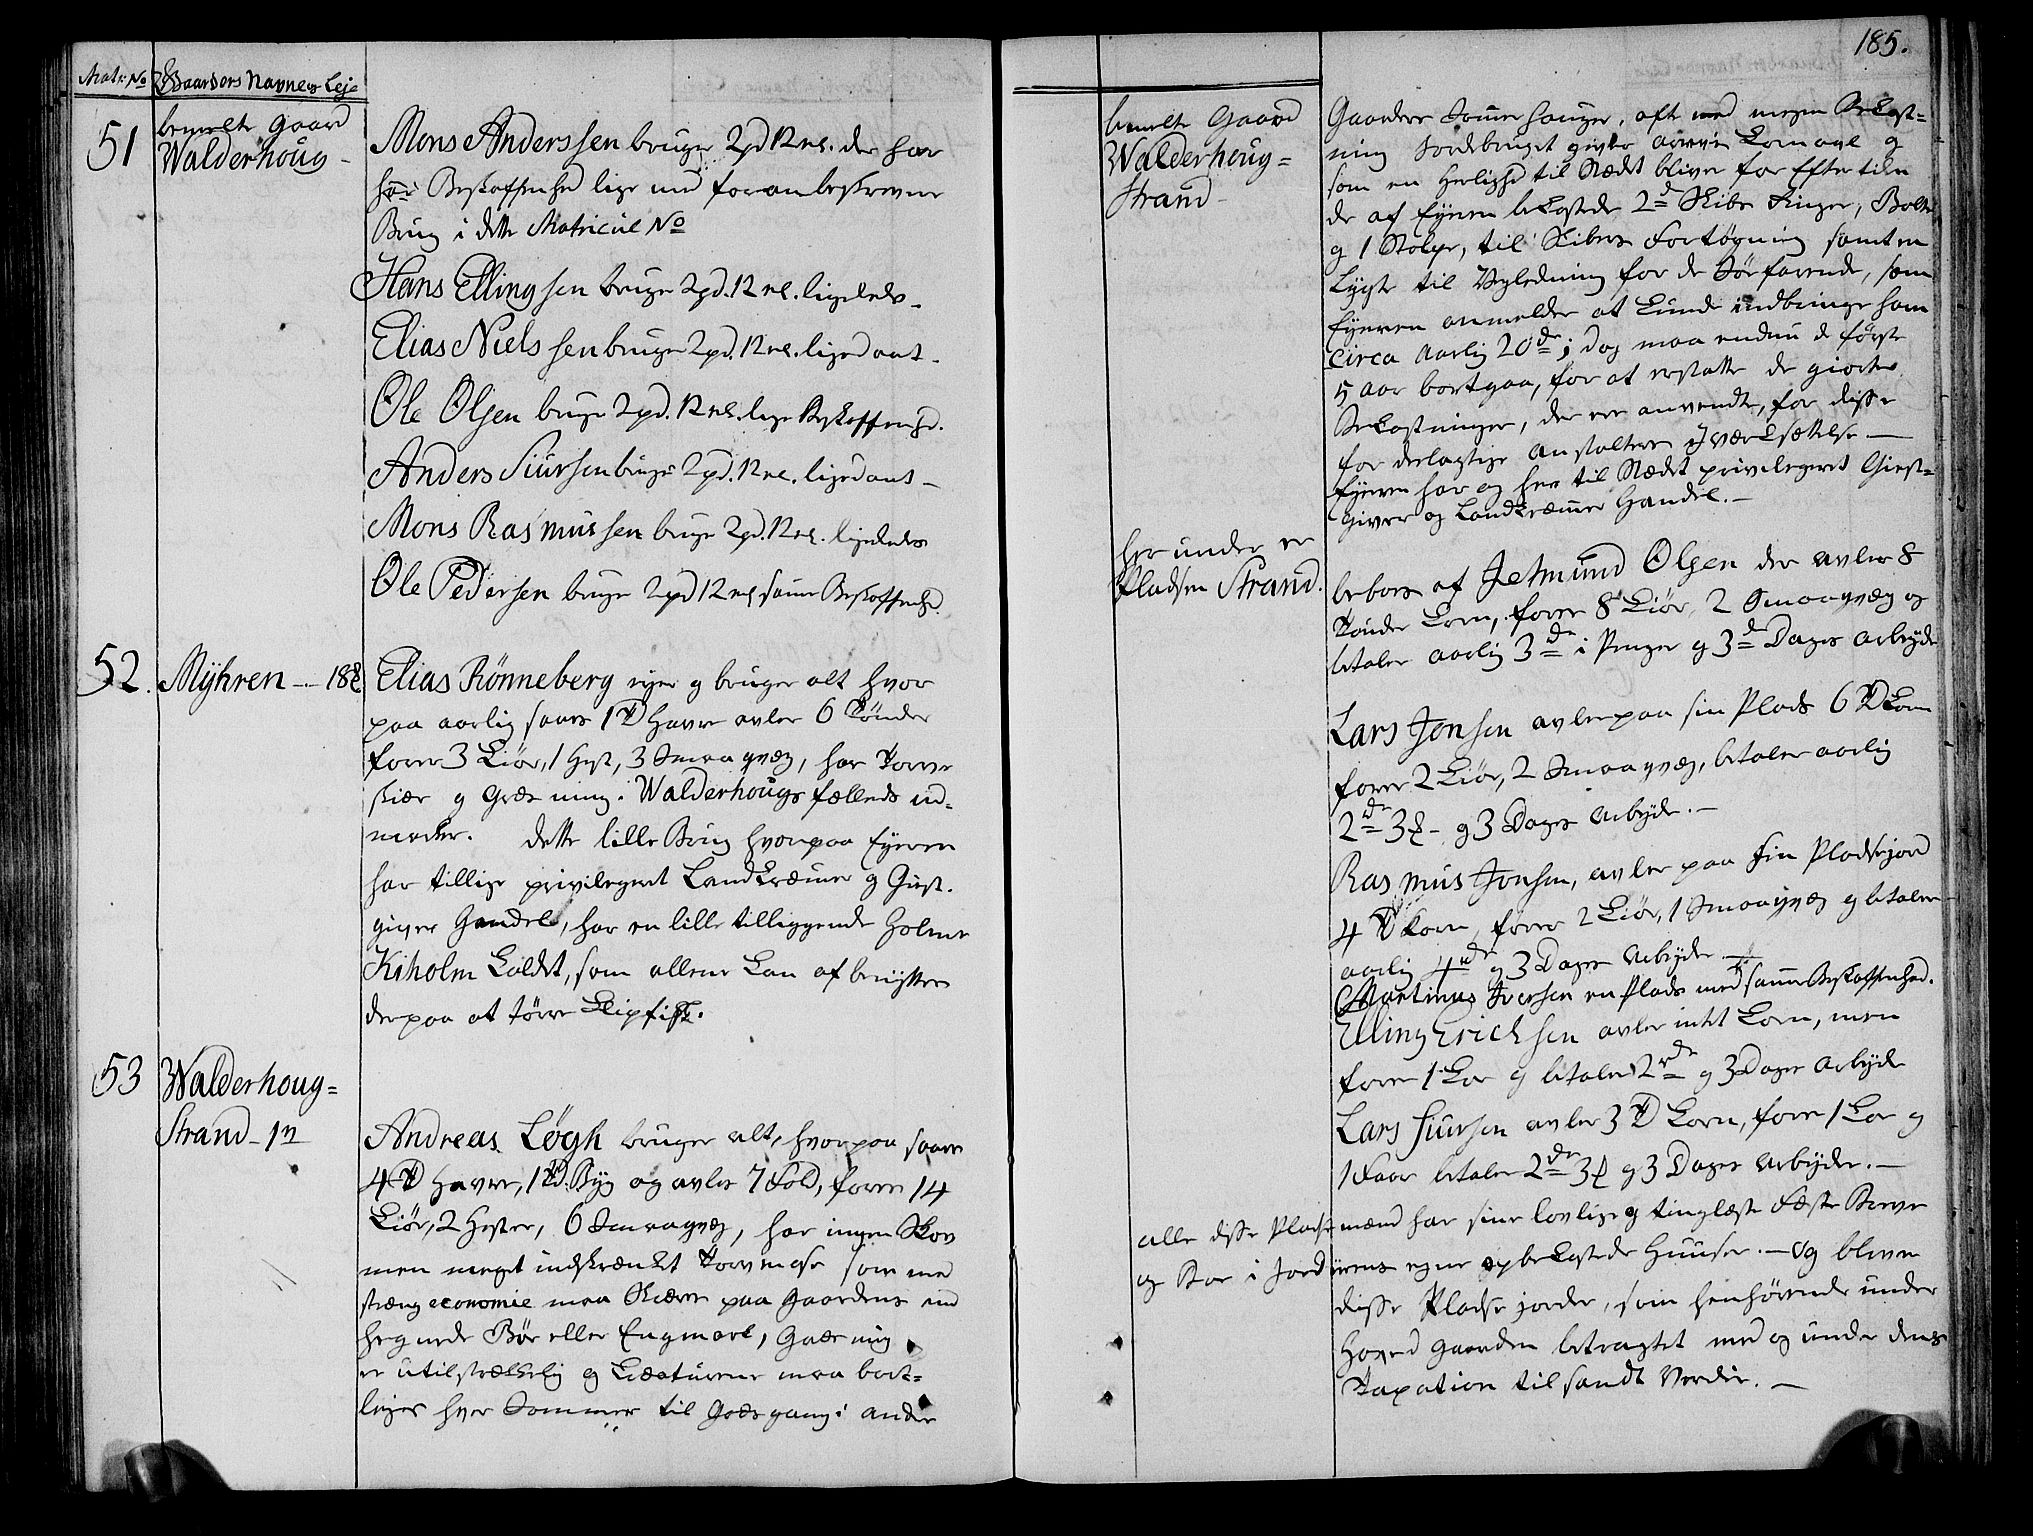 Matr: No
Gaarders Navne og Leje
51
bemelte Gaard
Walderhoug
Mons Anderssen bruger 2pd 12 ml. der har
har Beskaffenhed lige med foranbeskrevne
Brug i dette Matricul No
Hans Ellingsen bruger 2pd. 12 ml. ligeledes
Elias Nielssen bruger 2pd. 12 ml. ligedant
Ole Olsen bruger 2pd. 12 ml. lige Beskaffenhd.
Anders Siursen bruger 2pd. 12 ml. ligedant
Mons Rasmussen bruger 2pd. 12 ml. ligeledes
Ole Pedersen bruger 2pd 12 ml samme Beskaffenhd.
52. Myhren
Elias Rønneberg ejer og bruger alt hvor
paa aarlig saaes 1 Td Havre avler 6 Tønder
foer 3 Kiør, 1 Hest, 3 Smaaqvæg, har Torve
skiær og Græsning i Walderhougs fælleds ud-
marker. dette lille Brug hvorpaa Eyeren
har tillige privilegeret Landkræmer og Giest-
giver Handel, har en lille tilliggende Holme
Kiholm kaldet, som allene kan afbenyttes
derpaa at tørre Klipfisk.
53
Walderhoug-
Strand
Andreas Løgh bruger alt, hvorpaa saaes
4 Td Havre, 1 Td. Byg og avler 7 Fold, foer 14
Kiør, 2 Hester, 6 Smaaqvæg, har ingen Skov
men meget indskrænket Torvmose som med
stræng economie maa Skiæres paa Gaardens ind
hegnede Bøe eller Engmark, Græsning
er utilstrækkelig og Kreaturene maa bort-
lejes hver Sommer til Græsgang i andre
185.
bemelte Gaard
Walderhoug-
Strand
Gaarders Sommerhauger, ofte med megen Bekost-
ning Jordbruget giver Kornavl og
som en Herlighd til Stædet bliver for Eftertiden
de af Eyeren bekostede 2de Skibs Ringer, Bolte
og 1 Stolpe, til Skibes Fortøyning samt en
Lygte til Vejledning for de Søefarende, som
Eyeren anmelder at kunde indbringe ham
circa aarlig 20 rdr; dog maa endnu de første
5 aar bortgaa, for at erstatte de giorte
Bekostninger, der ere anvendte, for disse
fordeelagtige anstalters Iværksættelse
Eyeren har og her til Stædet privilegeret Giest-
giver og Landkræmer Handel.
her under er
Pladsen Strand.
beboes af Jetmund Olsen der avler 8
Tønder Korn, foer 8 Kiør, 2 Smaaqvæg og
betaler aarlig 3 rdr i Penger og 3de Dages arbeyde
Lars Jonsen avler paa sin Plads 6 Td Korn
foer 2 Kiør, 2 Smaaqvæg, betaler aarlig
2 rdr 3 og 3 Dages Arbeyde.
Rasmus Jonsen, avler paa sin Pladsejord
4 Td Korn, foer 2 Kiør, 1 Smaaqvæg og betaler
aarlig 4 rdr og 3 Dages Arbeyde
Martinus Iversen en Plads med samme Beskaffenhed.
Elling Erichsen avler intet Korn, men
foer 1 Koe og betaler 2 rdr og 3 Dages Arbeyde
Lars Siursen avler 3 Td Korn, foer 1 Koe og
1 Faar betaler 2 rdr 3 og 3 Dages Arbeyde.
alle disse Pladsemænd har sine lovlige og tinglæste Fæste Breve
og Boe i Jordeyerens egne opbekostede Huuser. og bliver
disse Pladse jorder, som henhørende under
Hoved Gaarden betragtet med og under dens
Taxation til sandt Verdie.